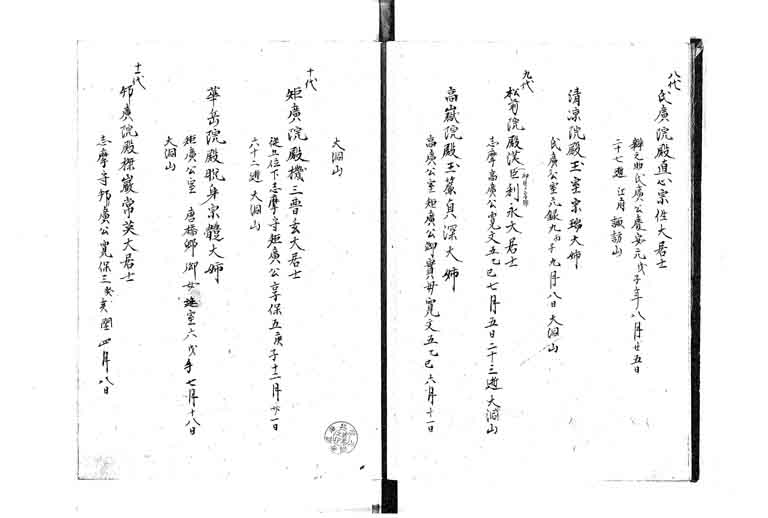 八代
氏廣院殿直心宗佐大居士
氏廣公慶安元戊子年八月廿五日
二十七逝 江府 諏訪山
清凉院殿玉室宗瑞大姉
氏廣公室元録九丙子九月八日 大洞山
九代
松前院殿漢臣利永大居士
志摩高廣公寛文五乙巳七月五日二十三逝大洞山
高嶽院殿玉簾貞深大姉
高廣公室矩廣公御實母寛文五乙巳六月十一日
大洞山
十代
矩廣院殿機三晋玄大居士
從五位下志摩守矩廣公享保五庚子十二月廿一日
六十二逝 大洞山
華岳院殿脱身宗體大姉
矩廣公室 唐橋郷御女 六戊子七月十八日
大洞山
十一代
邦廣院殿傑巌常英大居士
志摩守邦廣公寛保三癸亥閏四月八日